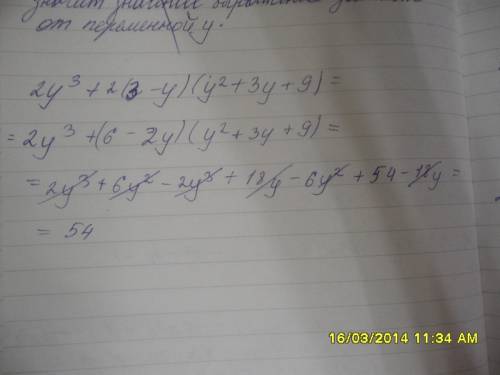 значит значение выражения
от переменной y.
2y³ + 2(3 - y)(y² + 3y + 9) =
= 2y³ + (6 - 2y)(y² + 3y + 9) =
= 2y³ + 6y² - 2y³ + 18y - 6y² + 54 - 18y =
= 54
16/03/2014 11:34 AM